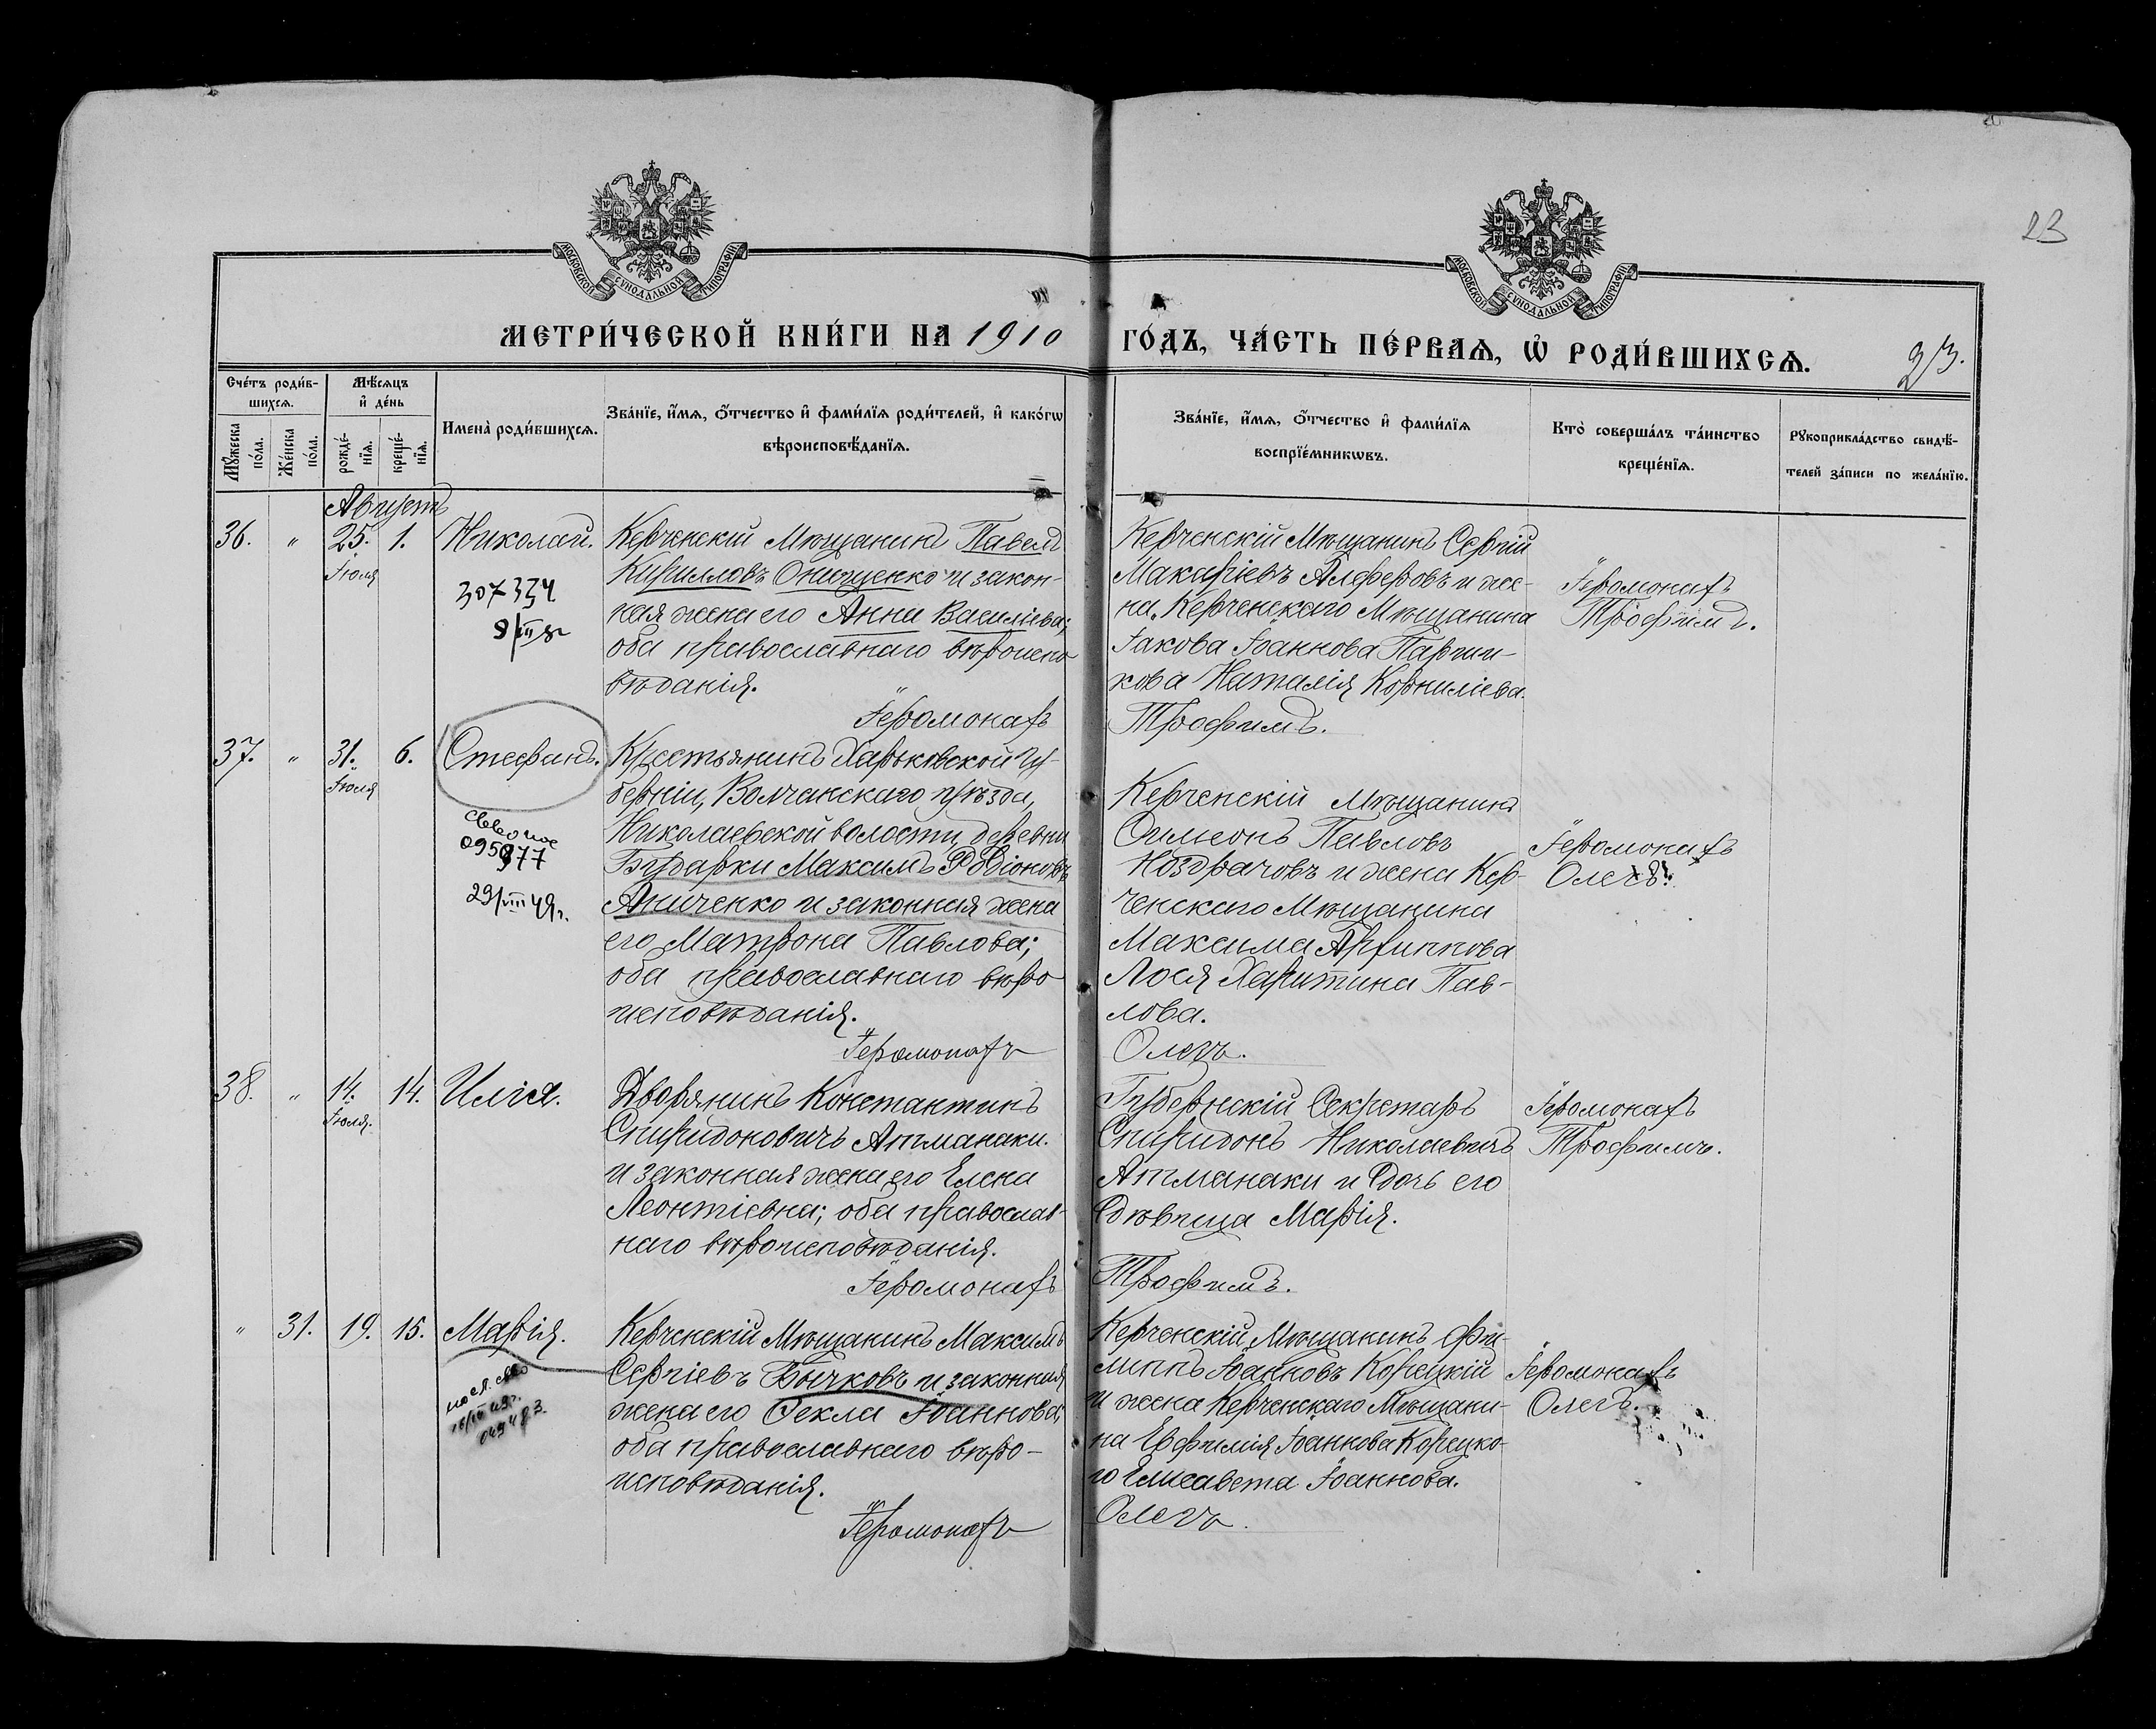 23
МОСКОВСКОЙ СѴНОДАЛЬНОЙ ТИПОГРАФІИ
МОСКОВСКОЙ СѴНОДАЛЬНОЙ ТИПОГРАФІИ
МЕТРИ́ЧЕСКОЙ КНИ́ГИ НА 1910 ГО́ДЪ, ЧА́СТЬ ПЕ́РВАѦ, Ѡ҆ РОДИ́ВШИХСѦ.
23.
Сче́тъ роди́в-
шихсѧ.
Мѣ́сѧцъ
и҆ де́нь
Мꙋ́жеска
по́ла.
Же́нска
по́ла.
рожде́-
нїѧ.
креще́-
нїѧ.
Имена̀ роди́вшихсѧ.
Зва́нїе, и҆́мѧ, ѻ҆́тчество и҆ фами́лїѧ роди́телей, и҆ како́гѡ
вѣроисповѣ́данїѧ.
Зва́нїе, и҆́мѧ, ѻ҆́тчество и҆ фами́лїѧ
воспрїе́мникѡвъ.
Кто̀ соверша́лъ та́инство
креще́нїѧ.
Рꙋкоприкла́дство свидѣ́-
телей за́писи по жела́нїю.
Августъ
36. " 25. 1. Николай.
Іюля
307334
Керченскій Мѣщанинъ Павелъ
Кирилловъ Онищенко и закон-
ная жена его Анна Василіева;
оба православнаго вѣроиспо
вѣданія.
Іеромонахъ
Керченскій Мѣщанинъ Сергій
Макаріевъ Алферовъ и же-
на Керченскаго Мѣщанина
Іакова Іоаннова Парши-
кова Наталія Корниліева.
Трофимъ.
Іеромонахъ
Трофимъ.
37. " 31. 6. Стефанъ.
Іюля
29/VIII 49г.
Крестьянинъ Харьковской Гу-
берніи, Волчанскаго уѣзда,
Николаевской волости, деревни
Бударки Максимъ Родіоновъ
Аниченко и законная жена
его Матрона Павлова;
оба православнаго вѣро
исповѣданія.
Іеромонахъ
Керченскій Мѣщанинъ
Симеонъ Павловъ
Ноздрачовъ и жена Кер-
ченскаго Мѣщанина
Максима Архиппова
Лося Харитина Пав-
лова.
Олегъ.
Іеромонахъ
Олегъ.
38. " 14. 14. Илія.
Іюля.
Дворянинъ Константинъ
Спиридоновичъ Атманаки.
и законная жена его Елена
Леонтіевна; оба православ-
наго вѣроисповѣданія.
Іеромонахъ
Губернскій Секретарь
Спиридонъ Николаевичъ
Атманаки и дочь его
дѣвица Марія.
Трофимъ.
Іеромонахъ
Трофимъ.
" 31. 19. 15. Марія.
Керченскій Мѣщанинъ Максимъ
Сергіевъ Бычковъ и законная
жена его Ѳекла Іоаннова;
оба православнаго вѣро-
исповѣданія.
Іеромонахъ
Керченскій Мѣщанинъ Фи-
липпъ Іоанновъ Корецкій
и жена Керченскаго Мѣщани-
на Евфимія Іоаннова Корецко-
го Елисавета Іоаннова.
Олегъ.
Іеромонахъ
Олегъ.